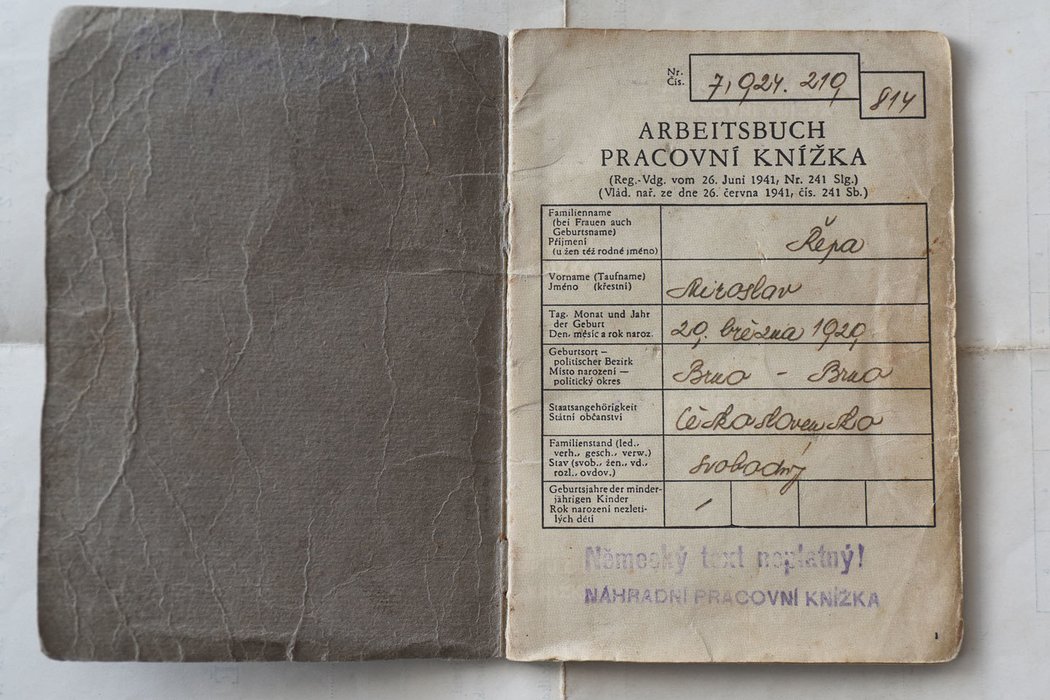 Nr.
Čís.
7,924.219
814
ARBEITSBUCH
PRACOVNÍ KNÍŽKA
(Reg.-Vdg. vom 26. Juni 1941, Nr. 241 Slg.)
(Vlád. nař. ze dne 26. června 1941, čís. 241 Sb.)
Familienname
(bei Frauen auch
Geburtsname)
Příjmení
(u žen též rodné jméno)
Řépa
Vorname (Taufname)
Jméno (křestní)
Miroslav
Tag, Monat und Jahr
der Geburt
Den, měsíc a rok naroz.
29. března 1929
Geburtsort –
politischer Bezirk
Místo narození —
politický okres
Brno - Brno
Staatsangehörigkeit
Státní občanství
Československá
Familienstand (led.,
verh., gesch., verw.)
Stav (svob., žen., vd.,
rozl., ovdov.)
svobodný
Geburtsjahre der minder-
jährigen Kinder
Rok narození nezleti-
lých dětí
Německý text neplatný!
NÁHRADNÍ PRACOVNÍ KNÍŽKA
1